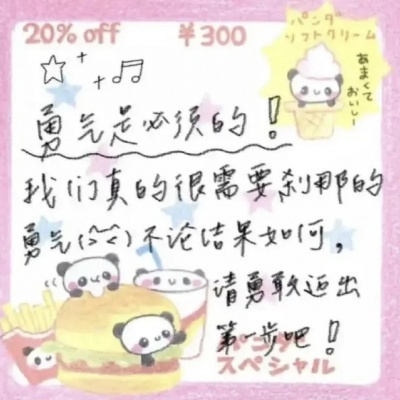 20% off ¥300
パンダ
ソフトクリーム
あまくて
おいしー
勇气是必须的！
我们真的很需要刹那的
勇气(ˇˇ)不论结果如何，
请勇敢迈出
第一步吧！
スペシャル